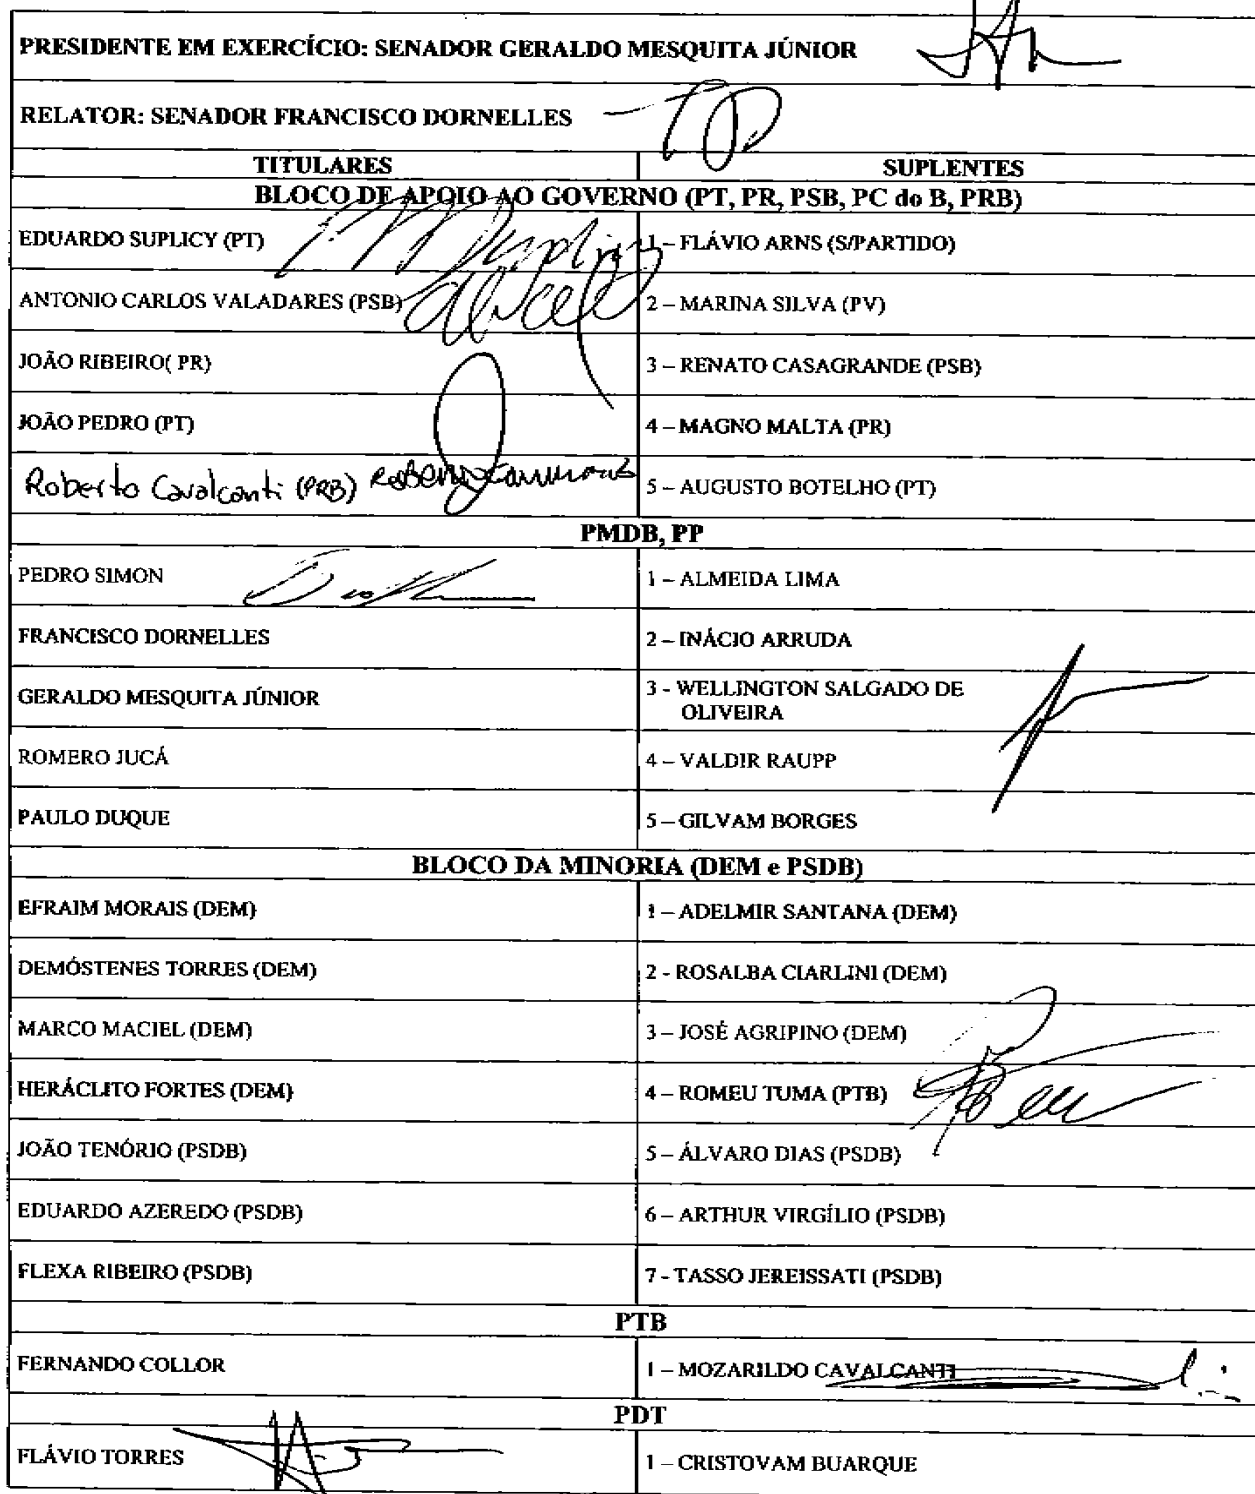 PRESIDENTE EM EXERCÍCIO: SENADOR GERALDO MESQUITA JÚNIOR
RELATOR: SENADOR FRANCISCO DORNELLES
TITULARES SUPLENTES
BLOCO DE APOIO AO GOVERNO (PT, PR, PSB, PC do B, PRB)
EDUARDO SUPLICY (PT) 1 – FLÁVIO ARNS (S/PARTIDO)
ANTONIO CARLOS VALADARES (PSB) 2 – MARINA SILVA (PV)
JOÃO RIBEIRO( PR) 3 – RENATO CASAGRANDE (PSB)
JOÃO PEDRO (PT) 4 – MAGNO MALTA (PR)
Roberto Cavalcanti (PRB) 5 – AUGUSTO BOTELHO (PT)
PMDB, PP
PEDRO SIMON 1 – ALMEIDA LIMA
FRANCISCO DORNELLES 2 – INÁCIO ARRUDA
GERALDO MESQUITA JÚNIOR 3 - WELLINGTON SALGADO DE
OLIVEIRA
ROMERO JUCÁ 4 – VALDIR RAUPP
PAULO DUQUE 5 – GILVAM BORGES
BLOCO DA MINORIA (DEM e PSDB)
EFRAIM MORAIS (DEM) 1 – ADELMIR SANTANA (DEM)
DEMÓSTENES TORRES (DEM) 2 - ROSALBA CIARLINI (DEM)
MARCO MACIEL (DEM) 3 – JOSÉ AGRIPINO (DEM)
HERÁCLITO FORTES (DEM) 4 – ROMEU TUMA (PTB)
JOÃO TENÓRIO (PSDB) 5 – ÁLVARO DIAS (PSDB)
EDUARDO AZEREDO (PSDB) 6 – ARTHUR VIRGÍLIO (PSDB)
FLEXA RIBEIRO (PSDB) 7 - TASSO JEREISSATI (PSDB)
PTB
FERNANDO COLLOR 1 – MOZARILDO CAVALCANTI
PDT
FLÁVIO TORRES 1 – CRISTOVAM BUARQUE